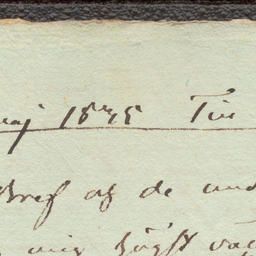 maj 1875 Tin
Bref af de und
mig högst vä